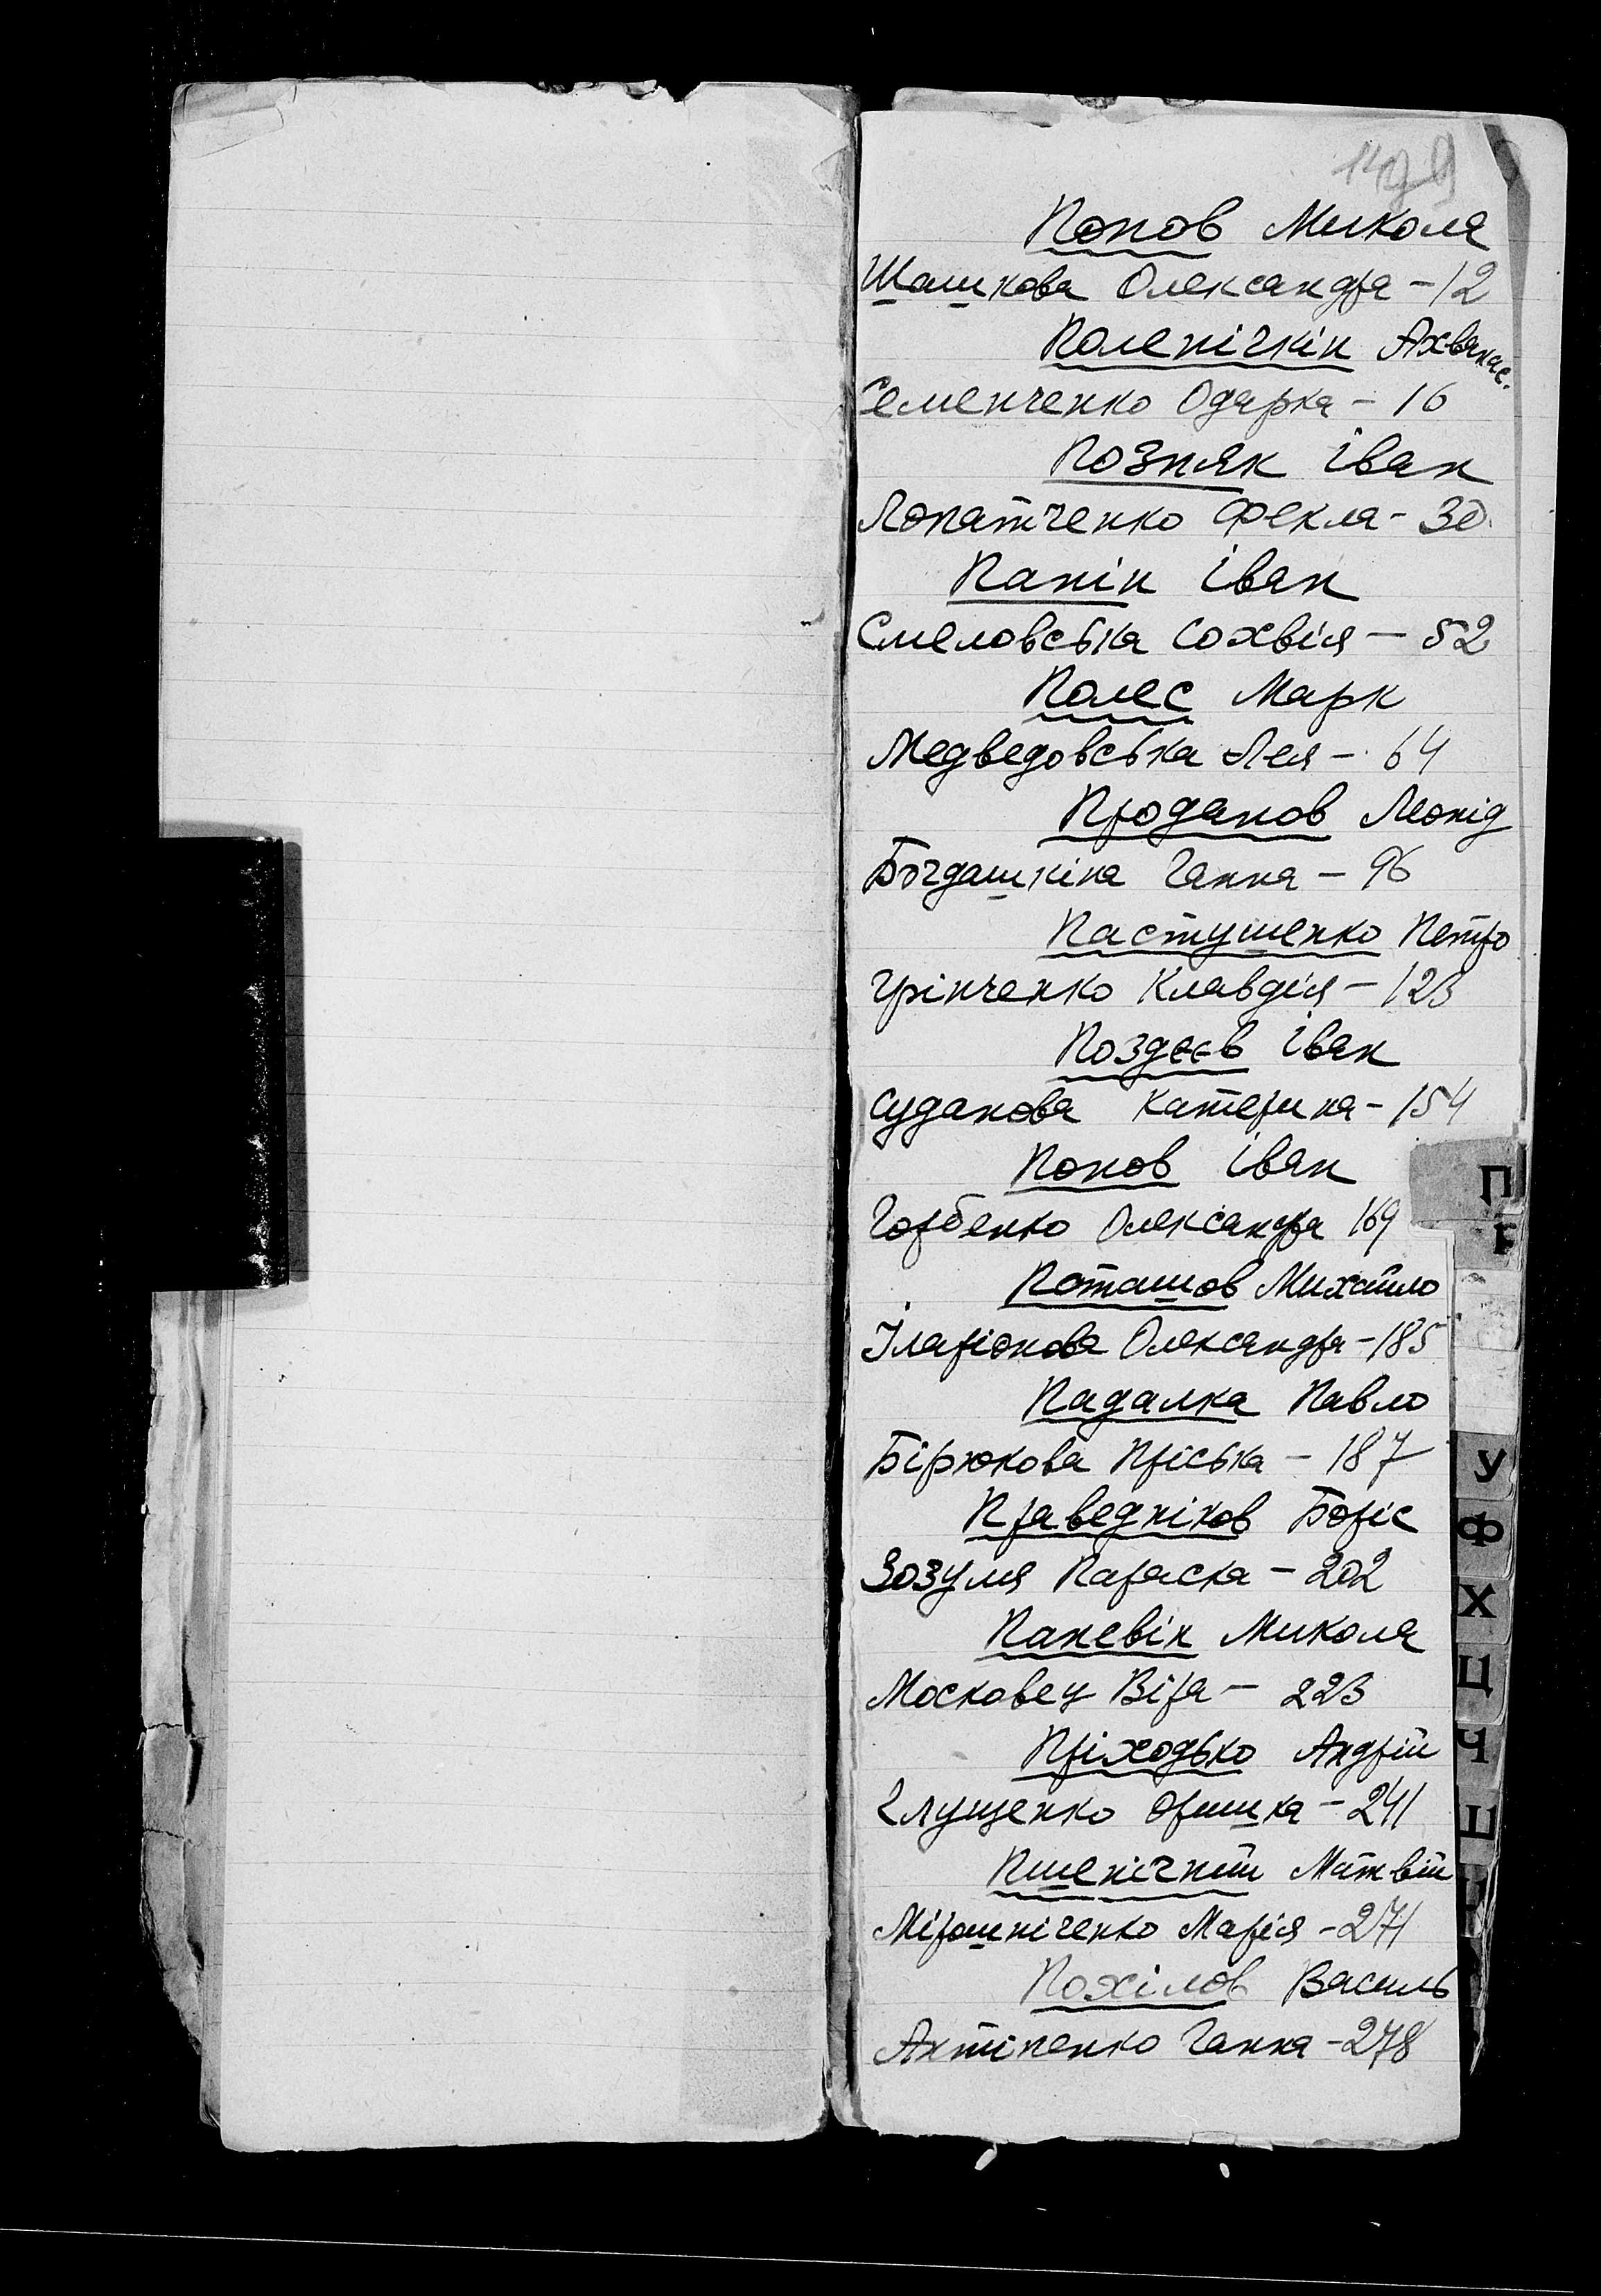 Попов Микола
Шашкова Олександра - 12
Полепічкін Ахванас.
Семенченко Одарка - 16
Позняк Іван
Лопатченко Фекла - 30
Папін Іван
Смеловська Сохвія - 52
Полес Марк
Медведовська Лея - 64
Проданов Леонід
Богдашкіна Ганна - 96
Пастушенко Петро
Грінченко Клавдія - 123
Поздєєв Іван
Суданова Катерина - 154
Попов Іван
Горбенко Олександра 169
Поташов Михайло
Іларіонова Олександра - 185
Падалка Павло
Бірюкова Пріська - 187
Праведніков Боріс
Зозуля Параска - 202
Паневін Микола
Московец Віра - 223
Пріходько Андрій
Глущенко Оришка - 241
Пшенічний Матвій
Мірошніченко Марія - 271
Похілов Василь
Антіпенко Ганна - 278
П
У
Ф
Х
Ц
Ч